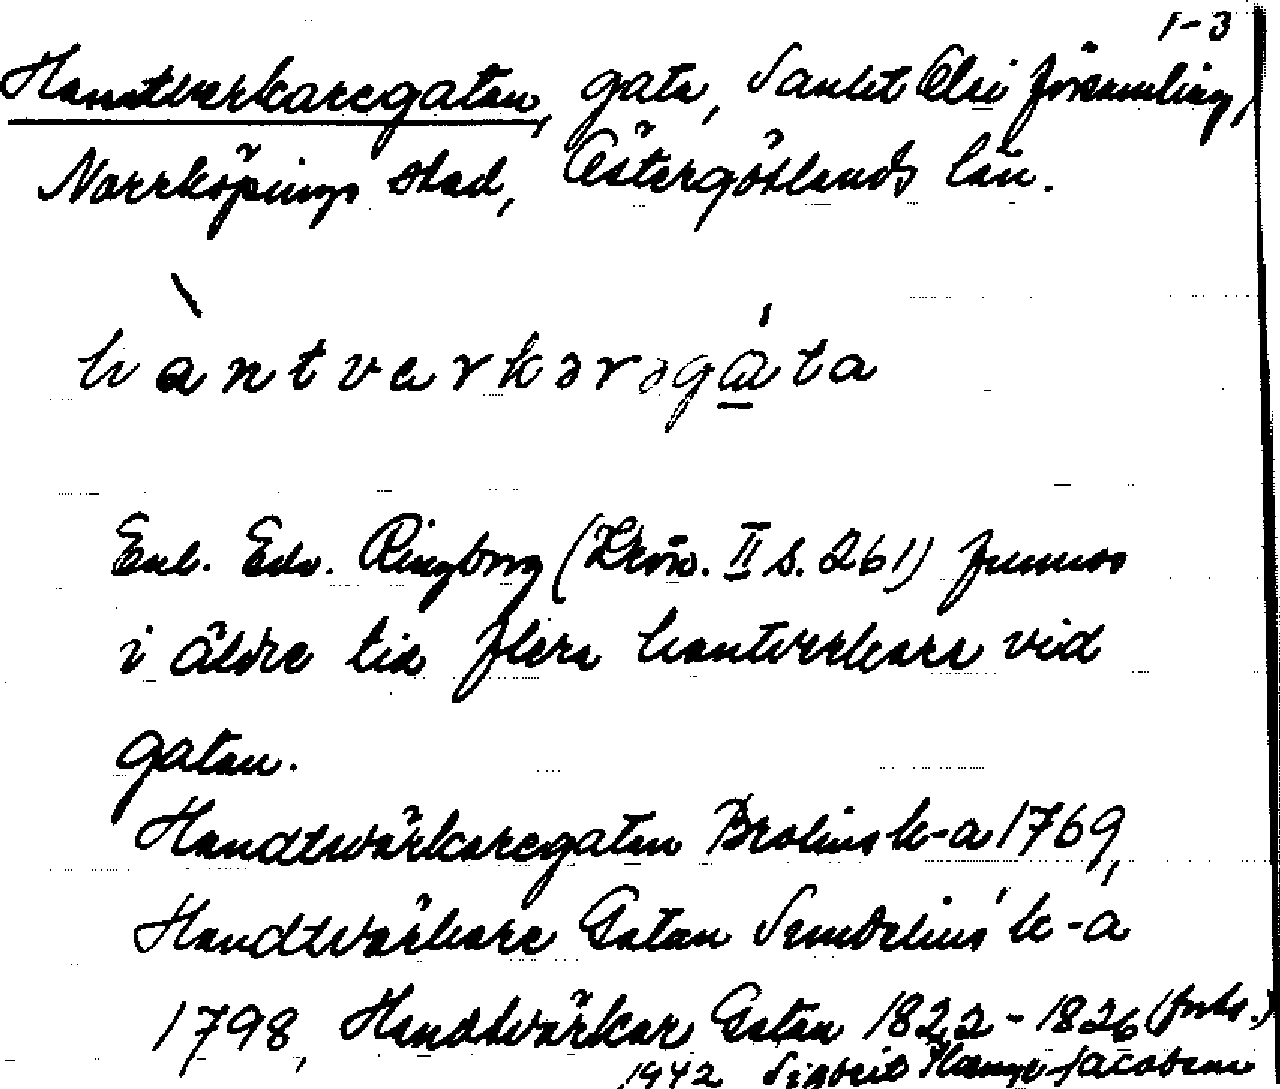 1-3
Hantverkaregatan, gata, Sankt Olai församling,
Norrköpings stad, Östergötlands län.
hàntvarkərəgáta
Enl. Edv. Ringborg (Krön. II s. 261) funnos
i äldre tid flera hantverkare vid
gatan.
Handtwärkaregatan Brolins k-a 1769,
Handtwärkare Gatan Sundelius' k-a
1798, Handtwärkar Gatan 1822-1826 (forts.)
1942 Sigbrit Jacobson